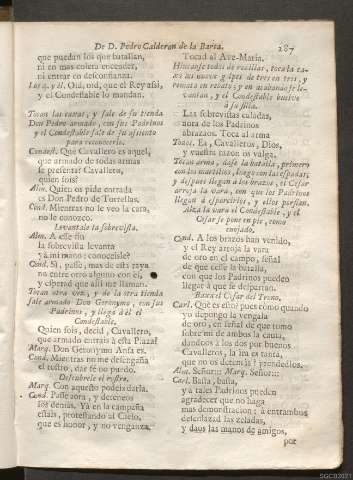 De D. Pedro Calderon de la Barca.
287
que puedan los que batallan,
ni en mas colera encender,
ni entrar en desconfianza.
Los q. y él. Oid, oid, que el Rey assi,
y el Condestable lo mandan.
Tocan las caxas, y sale de su tienda
Don Pedro armado, con sus Padrinos
y el Condestable sale de su assiento
para reconocerlo.
Condest. Que Cavallero es aquel,
que armado de todas armas
se presenta? Cavallero,
quien sois?
Alon. Quien os pide entrada
es Don Pedro de Torrellas.
Cond. Mientras no le veo la cara,
no le conozco.
Levantale la sobrevista.
Alon. A esse fin
la sobrevista levanta
ya mi mano: conoceisle?
Cond. Si, passe, mas de essa raya
no entre otro alguno con él,
y esperad que alli me llaman.
Tocan otra vez, y de la otra tienda
sale armado Don Geronymo, con sus
Padrinos, y llega à él el
Condestable.
Quien sois, decid, Cavallero,
que armado entrais à esta Plaza?
Marq. Don Geronymo Ansa es.
Cond. Mientras no me desengaña
el rostro, dar fé no puedo.
Descubrele el rostro.
Marq. Con aquesto podeis darla.
Cond. Passe aora, y deteneos
los demàs. Yà en la campaña
estais, protestando al Cielo,
que es honor, y no venganza,
Tocad al Ave-Maria.
Hincanse todos de rodillas, toca la ca-
xa los nueve golpes de tres en tres, y
remata en rebato; y en acabando se le-
vantan, y el Condestable buelve
à su silla.
Las sobrevistas caladas,
aora de los Padrinos
abrazaos. Toca al arma
Todos. Ea, Cavalleros, Dios,
y vuestra razon os valga.
Tocan arma, dase la batalla, primero
con los martillos, luego con las espadas,
y despues llegan à los brazos, el Cesar
arroja la vara, con que los Padrinos
llegan à esparcirlos, y ellos porfian.
Alza la vara el Condestable, y el
Cesar se pone en pie, como
enojado.
Cond. A los brazos han venido,
y el Rey arroja la vara
de oro en el campo, señal
de que cesse la batalla,
con que los Padrinos pueden
llegar à que se despartan.
Baxa el Cesar del Trono.
Carl. Què es esto? pues como quando
yo depongo la vengala
de oro, en señal de que tomo
sobre mi de ambos la causa,
dandoos à los dos por buenos
Cavalleros, la ira es tanta,
que no os deteneis? prendedlos.
Alm. Señor:: Marq. Señor::
Carl. Basta, basta,
y à tales Padrinos pueden
agradecer que no haga
mas demonstracion: à entrambos
desenlazad las zeladas,
y daos las manos de amigos,
por
SGCB2021